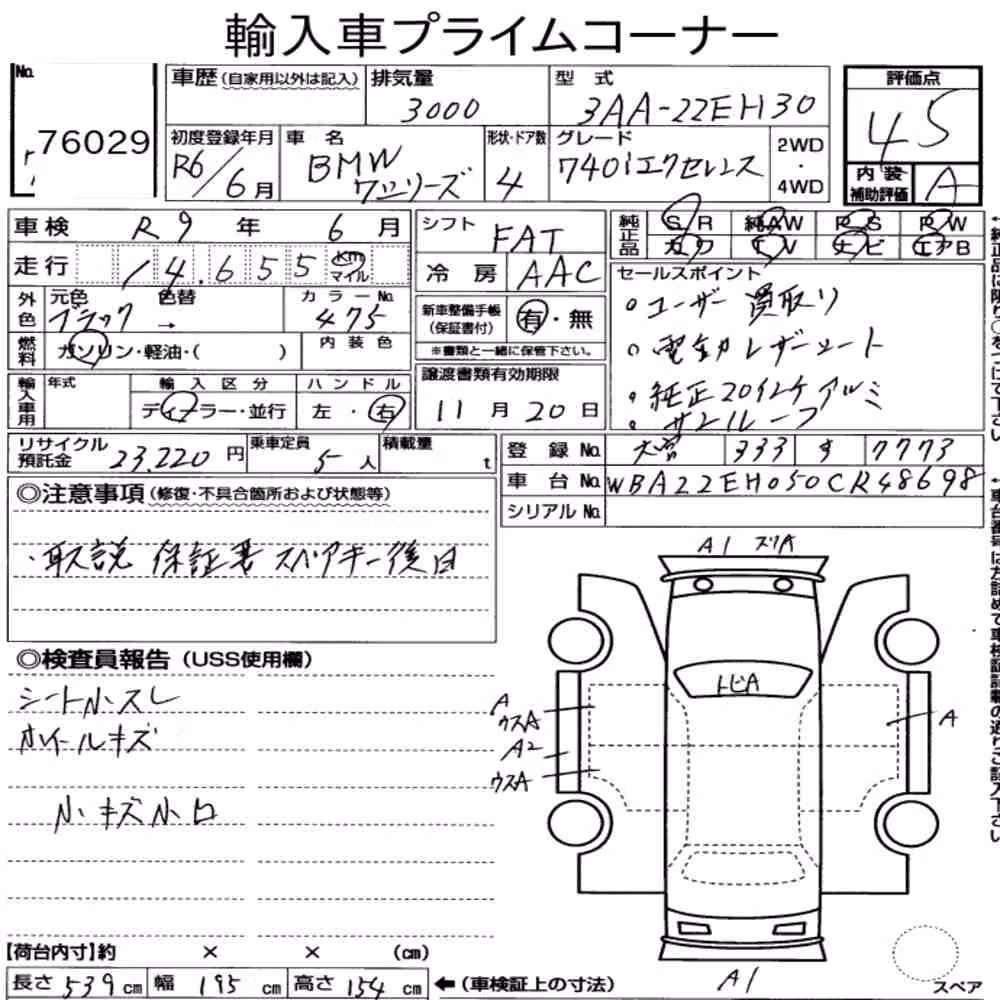 輸入車プライムコーナー
No.
76029
車歴 (自家用以外は記入)
排気量
3000
型式
3AA-22EH30
評価点
4.5
初度登録年月
R6/6月
車名
BMW
7シリーズ
形状・ドア数
4
グレード
740iエクセレンス
2WD
・
4WD
内装
補助評価
A
車検 R9年 6月
走行 14.655 km
マイル
シフト FAT
冷房 AAC
純正品
SR 純AW PS PW
カワ TV ナビ エアB
外色
元色
ブラック
色替
→
カラーNo.
475
燃料
ガソリン・軽油・( )
内装色
新車整備手帳
(保証書付)
有・無
※書類と一緒に保管下さい。
セールスポイント
・ユーザー買取り
・電動レザーシート
・純正20インチアルミ
・サンルーフ
輸入車用
年式
輸入区分
ディーラー・並行
ハンドル
左・右
譲渡書類有効期限
11月20日
リサイクル
預託金 23,220円
乗車定員
5人
積載量
t
登録No. 大宮 333 す 7773
車台No. WBA22EH050CR48698
シリアルNo.
◎注意事項 (修復・不具合箇所および状態等)
・取説 保証書 スペアキー後日
◎検査員報告 (USS使用欄)
シート小スレ
ホイールキズ
小キズ小凹
A1 スリA
トビA
A
ウスA
A2
ウスA
A
A1
スペア
【荷台内寸】約 × × (cm)
長さ 539cm 幅 195cm 高さ 154cm ←(車検証上の寸法)